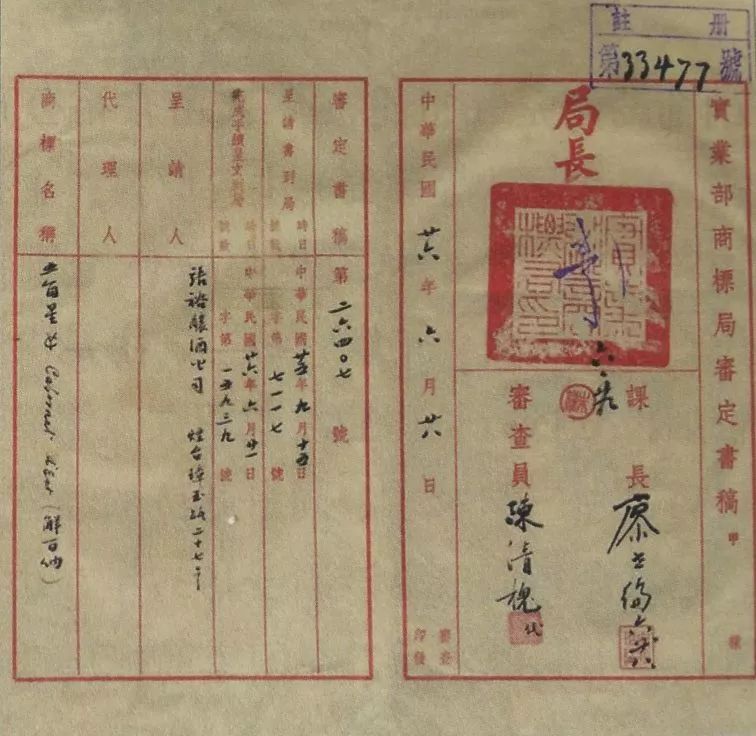 註冊
第33477號
實業部商標局審定書稿 甲種
局長
六、廿
課長
審查員 陳清槐 代
中華民國廿六年六月廿六日
審定書稿第二六四〇七號
呈請書到局 時日 中華民國廿五年九月十五日
號數 字第七一一七號
時日 中華民國廿六年六月廿一日
號數 字第一五九三九號
呈請人 張裕釀酒公司 煙台
代理人
商標名稱 Cabernet (解百納)